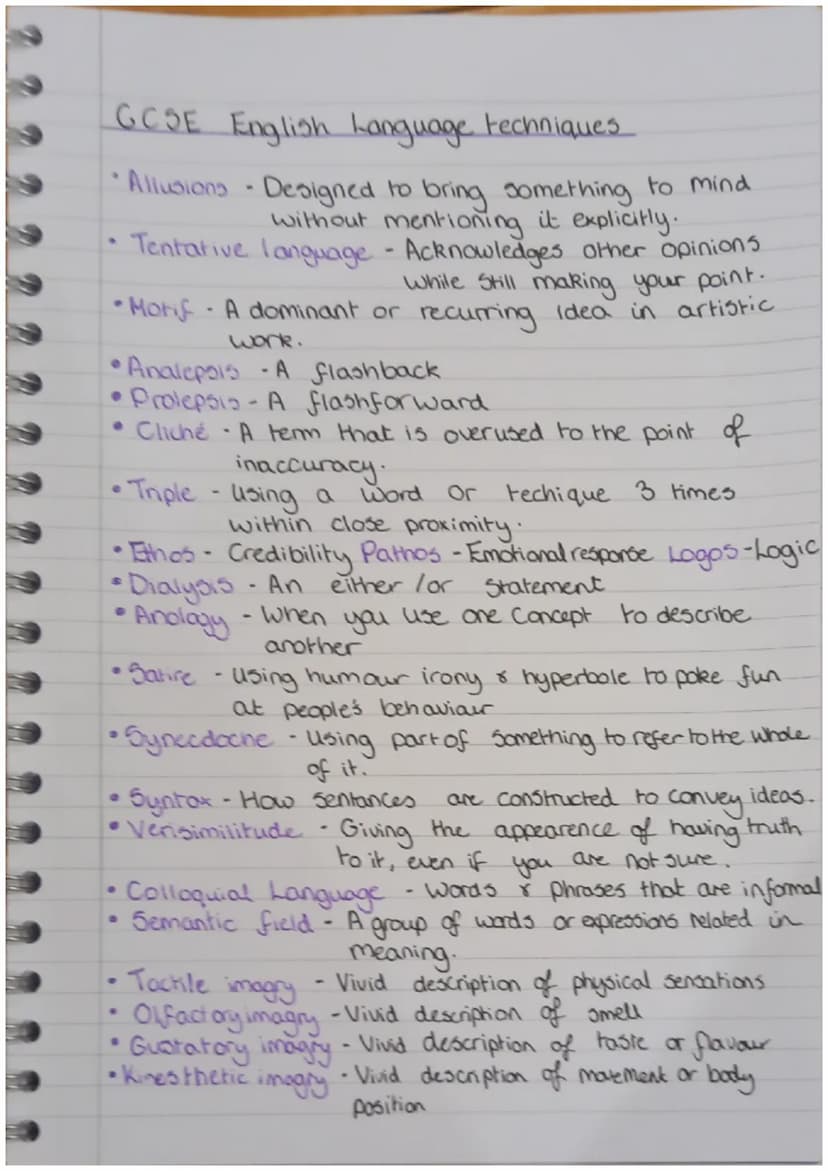 GCSE English Language techniques
• Allusions - Designed to bring something to mind
without mentioning it explicitly.
• Tentative language - Acknowledges other opinions
while still making your point.
• Motif - A dominant or recurring idea in artistic
work.
• Analepsis - A flashback
• Prolepsis - A flashforward
• Cliché - A term that is overused to the point of
inaccuracy.
• Triple - Using a word or techique 3 times
within close proximity.
• Ethos - Credibility Pathos - Emotional response Logos - Logic
• Dialysis - An either /or statement
• Anology - When you use one concept to describe
another
• Satire - Using humour irony & hyperbole to poke fun
at people's behaviour
• Synecdoche - Using part of something to refer to the whole
of it.
• Syntax - How sentances are constructed to convey ideas.
• Verisimilitude - Giving the appearence of having truth
to it, even if you are not sure.
• Colloquial Language - Words & phrases that are informal
• Semantic field - A group of words or expressions related in
meaning.
• Tactile imagry - Vivid description of physical sensations
• Olfactory imagry - Vivid description of smell
• Gustatory imagry - Vivid description of taste or flavour
• Kinesthetic imagry - Vivid description of movement or body
position